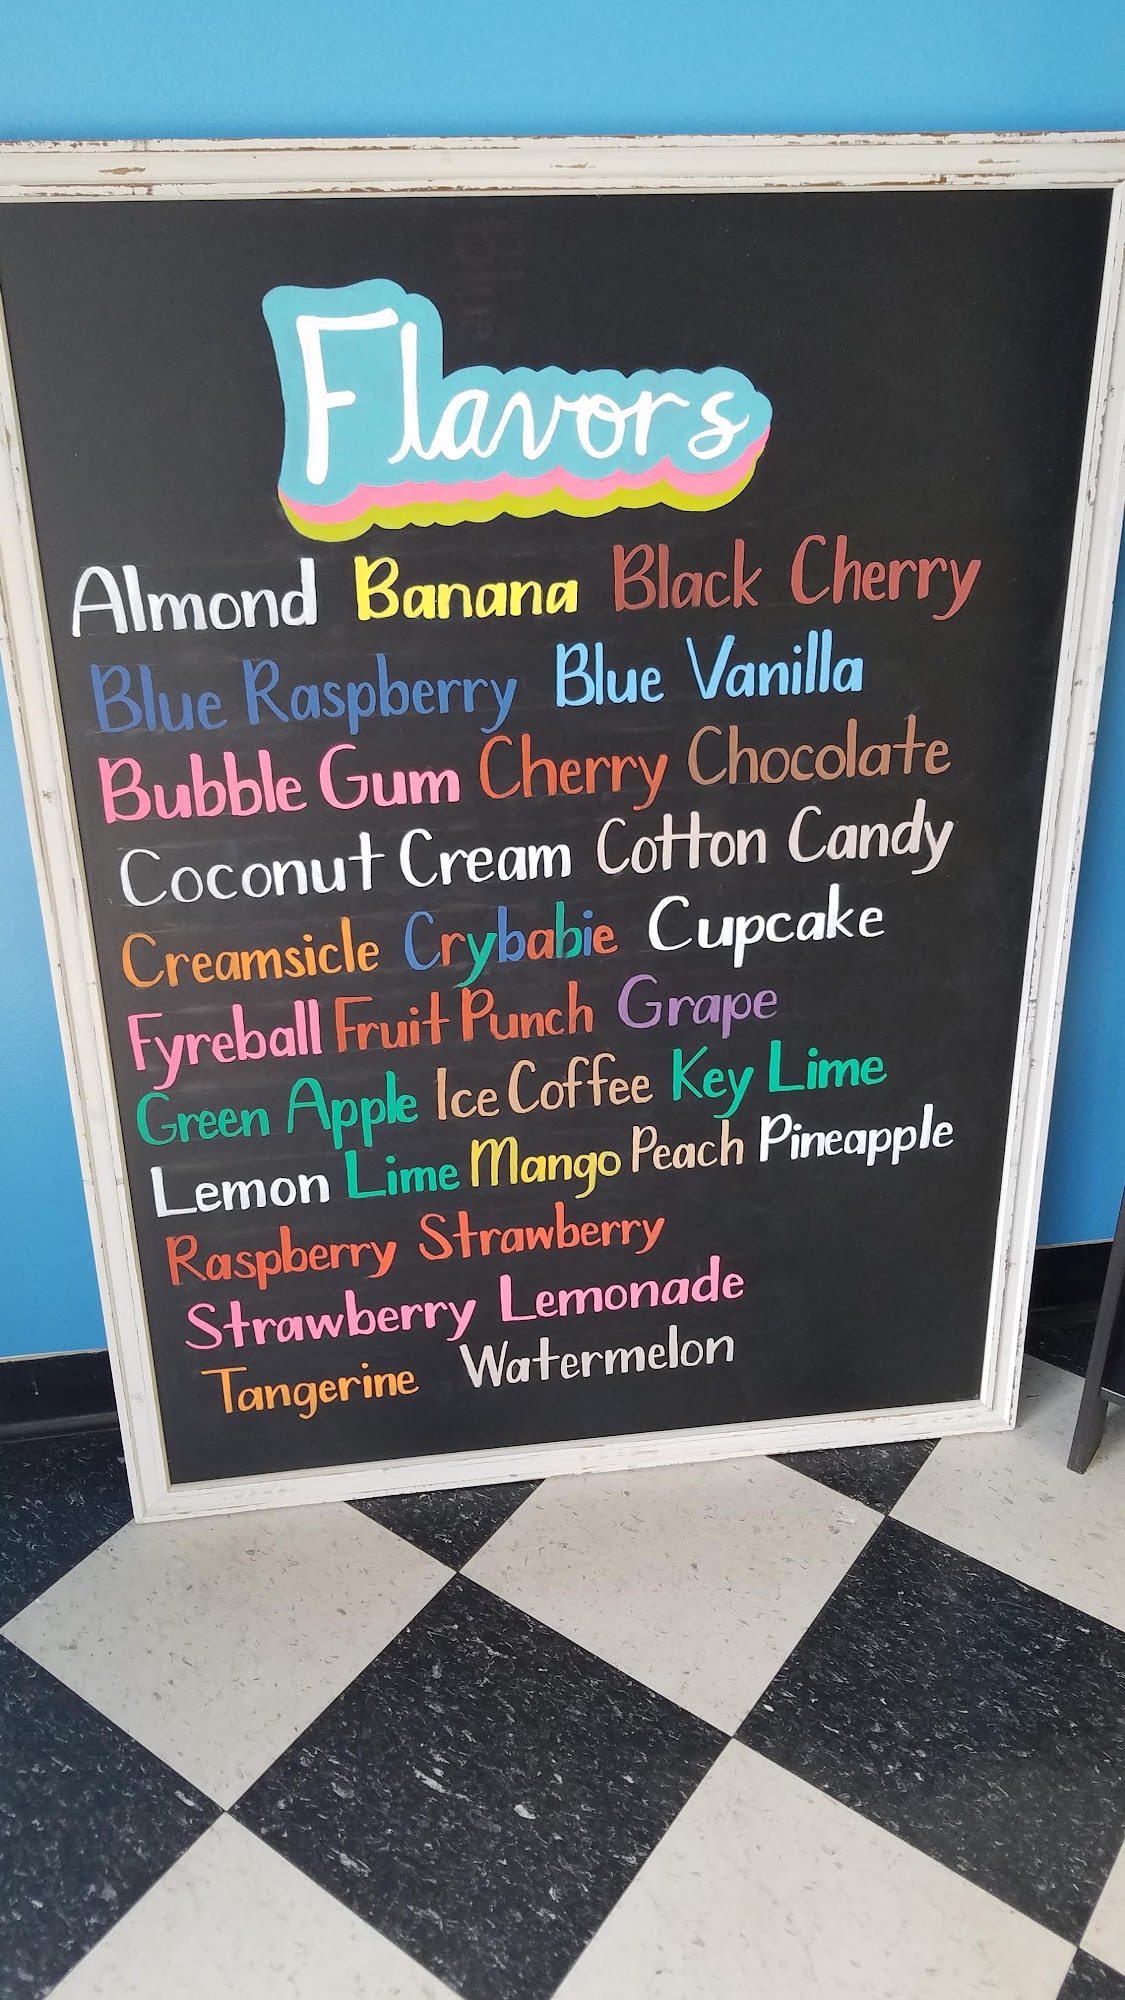 Flavors
Almond Banana Black Cherry
Blue Raspberry Blue Vanilla
Bubble Gum Cherry Chocolate
Coconut Cream Cotton Candy
Creamsicle Crybabie Cupcake
Fyreball Fruit Punch Grape
Green Apple Ice Coffee Key Lime
Lemon Lime Mango Peach Pineapple
Raspberry Strawberry
Strawberry Lemonade
Tangerine Watermelon